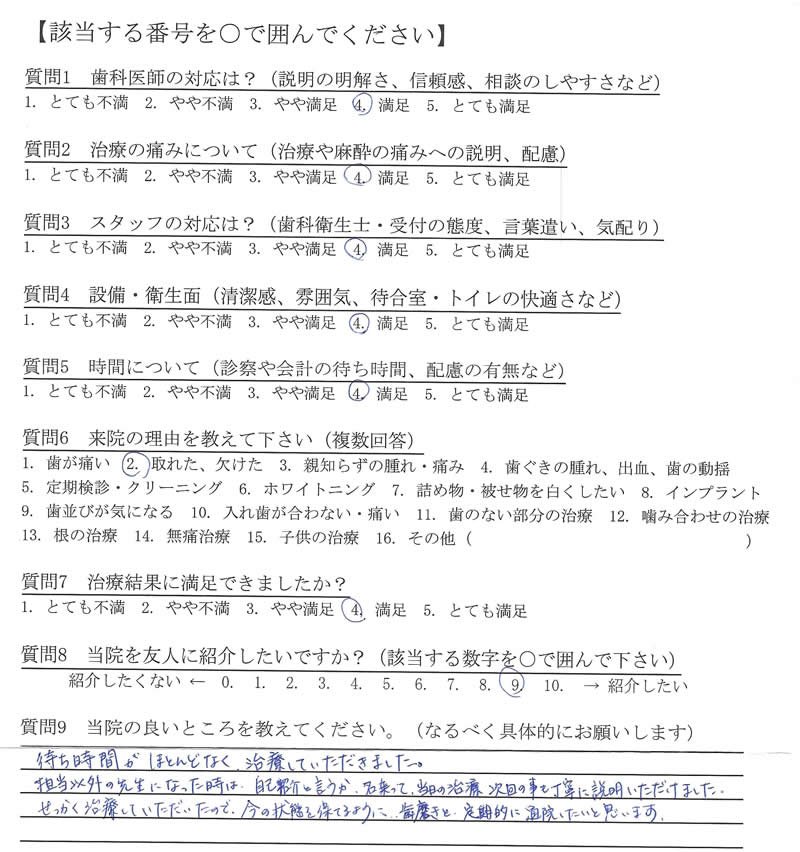 【該当する番号を○で囲んでください】
質問1　歯科医師の対応は？（説明の明解さ、信頼感、相談のしやすさなど）
1. とても不満　2. やや不満　3. やや満足　4. 満足　5. とても満足
質問2　治療の痛みについて（治療や麻酔の痛みへの説明、配慮）
1. とても不満　2. やや不満　3. やや満足　4. 満足　5. とても満足
質問3　スタッフの対応は？（歯科衛生士・受付の態度、言葉遣い、気配り）
1. とても不満　2. やや不満　3. やや満足　4. 満足　5. とても満足
質問4　設備・衛生面（清潔感、雰囲気、待合室・トイレの快適さなど）
1. とても不満　2. やや不満　3. やや満足　4. 満足　5. とても満足
質問5　時間について（診察や会計の待ち時間、配慮の有無など）
1. とても不満　2. やや不満　3. やや満足　4. 満足　5. とても満足
質問6　来院の理由を教えて下さい（複数回答）
1. 歯が痛い　2. 取れた、欠けた　3. 親知らずの腫れ・痛み　4. 歯ぐきの腫れ、出血、歯の動揺
5. 定期検診・クリーニング　6. ホワイトニング　7. 詰め物・被せ物を白くしたい　8. インプラント
9. 歯並びが気になる　10. 入れ歯が合わない・痛い　11. 歯のない部分の治療　12. 噛み合わせの治療
13. 根の治療　14. 無痛治療　15. 子供の治療　16. その他（　　　）
質問7　治療結果に満足できましたか？
1. とても不満　2. やや不満　3. やや満足　4. 満足　5. とても満足
質問8　当院を友人に紹介したいですか？（該当する数字を○で囲んで下さい）
紹介したくない ← 0. 1. 2. 3. 4. 5. 6. 7. 8. 9. 10. → 紹介したい
質問9　当院の良いところを教えてください。（なるべく具体的にお願いします）
待ち時間がほとんどなく、治療していただきました。
担当以外の先生になった時は、自己紹介と言うか、名乗って、当日の治療、次回の事も丁寧に説明いただけました。
せっかく治療していただいたので、今の状態を保てるように、歯磨きと、定期的に通院したいと思います。